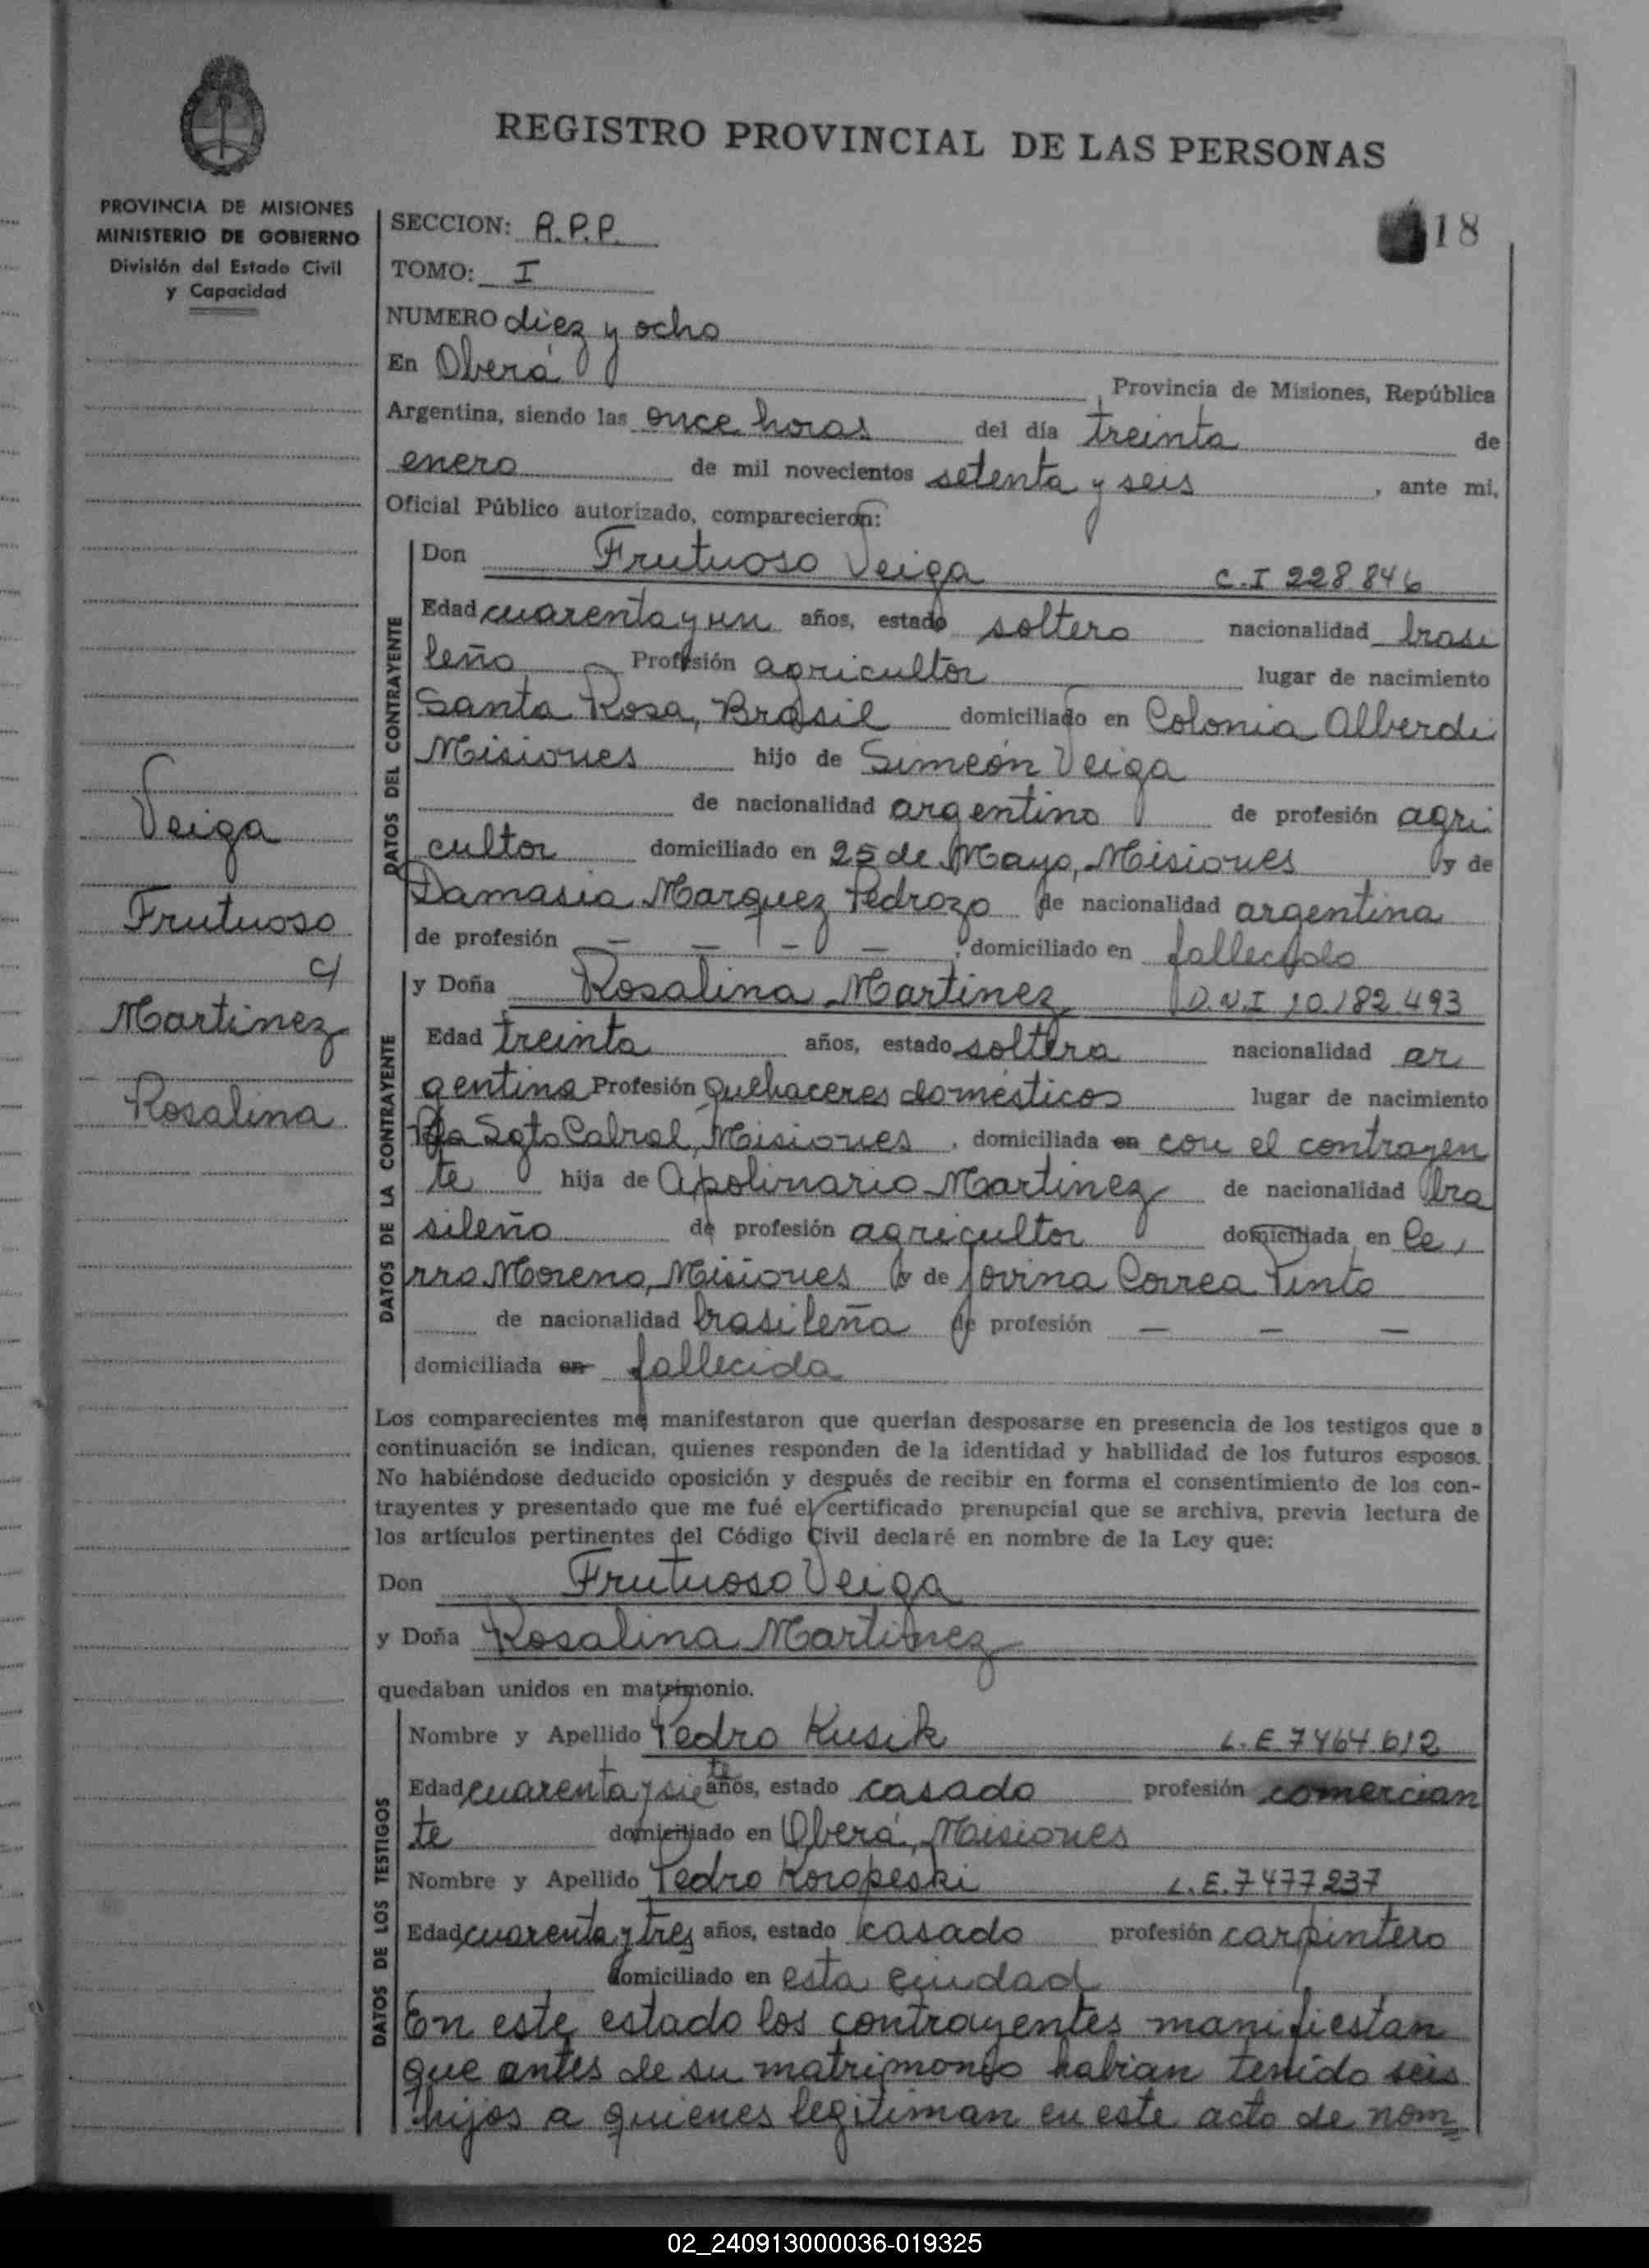 REGISTRO PROVINCIAL DE LAS PERSONAS
PROVINCIA DE MISIONES
MINISTERIO DE GOBIERNO
División del Estado Civil
y Capacidad
18
SECCION: R.P.P.
TOMO: I
NUMERO diez y ocho
En Oberá, Provincia de Misiones, República
Argentina, siendo las once horas del día treinta de
enero de mil novecientos setenta y seis, ante mi,
Oficial Público autorizado, comparecieron:
DATOS DEL CONTRAYENTE
Don Frutuoso Veiga C.I 228.846
Edad cuarenta y un años, estado soltero nacionalidad brasi
leño Profesión agricultor lugar de nacimiento
Santa Rosa, Brasil domiciliado en Colonia Alberdi
Misiones hijo de Simeón Veiga
de nacionalidad argentino de profesión agri
cultor domiciliado en 25 de Mayo, Misiones y de
Damasia Marquez Pedrozo de nacionalidad argentina
de profesión - - - -, domiciliado en
Veiga
Frutuoso
c/
Martinez
Rosalina
DATOS DE LA CONTRAYENTE
y Doña Rosalina Martinez D.N.I 10.182.493
Edad treinta años, estado soltera nacionalidad ar
gentina Profesión Quehaceres domésticos lugar de nacimiento
Sgto Cabral, Misiones, domiciliada en con el contrayen
te hija de Apolinario Martinez de nacionalidad bra
sileño de profesión agricultor domiciliada en Ce
rro Moreno, Misiones y de Jovina Correa Pinto
de nacionalidad brasileña de profesión - - -
domiciliada en fallecida
Los comparecientes me manifestaron que querían desposarse en presencia de los testigos que a
continuación se indican, quienes responden de la identidad y habilidad de los futuros esposos.
No habiéndose deducido oposición y después de recibir en forma el consentimiento de los con-
trayentes y presentado que me fué el certificado prenupcial que se archiva, previa lectura de
los artículos pertinentes del Código Civil declaré en nombre de la Ley que:
Don Frutuoso Veiga
y Doña Rosalina Martinez
quedaban unidos en matrimonio.
DATOS DE LOS TESTIGOS
Nombre y Apellido Pedro Kusik L.E.7464.612
Edad cuarenta y siete años, estado casado profesión comercian
te domiciliado en Oberá, Misiones
Nombre y Apellido Pedro Koropeski L.E.7477237
Edad cuarenta y tres años, estado casado profesión carpintero
domiciliado en esta ciudad
En este estado los contrayentes manifiestan
que antes de su matrimonio habian tenido seis
hijos a quienes legitiman en este acto de nom
02_240913000036-019325